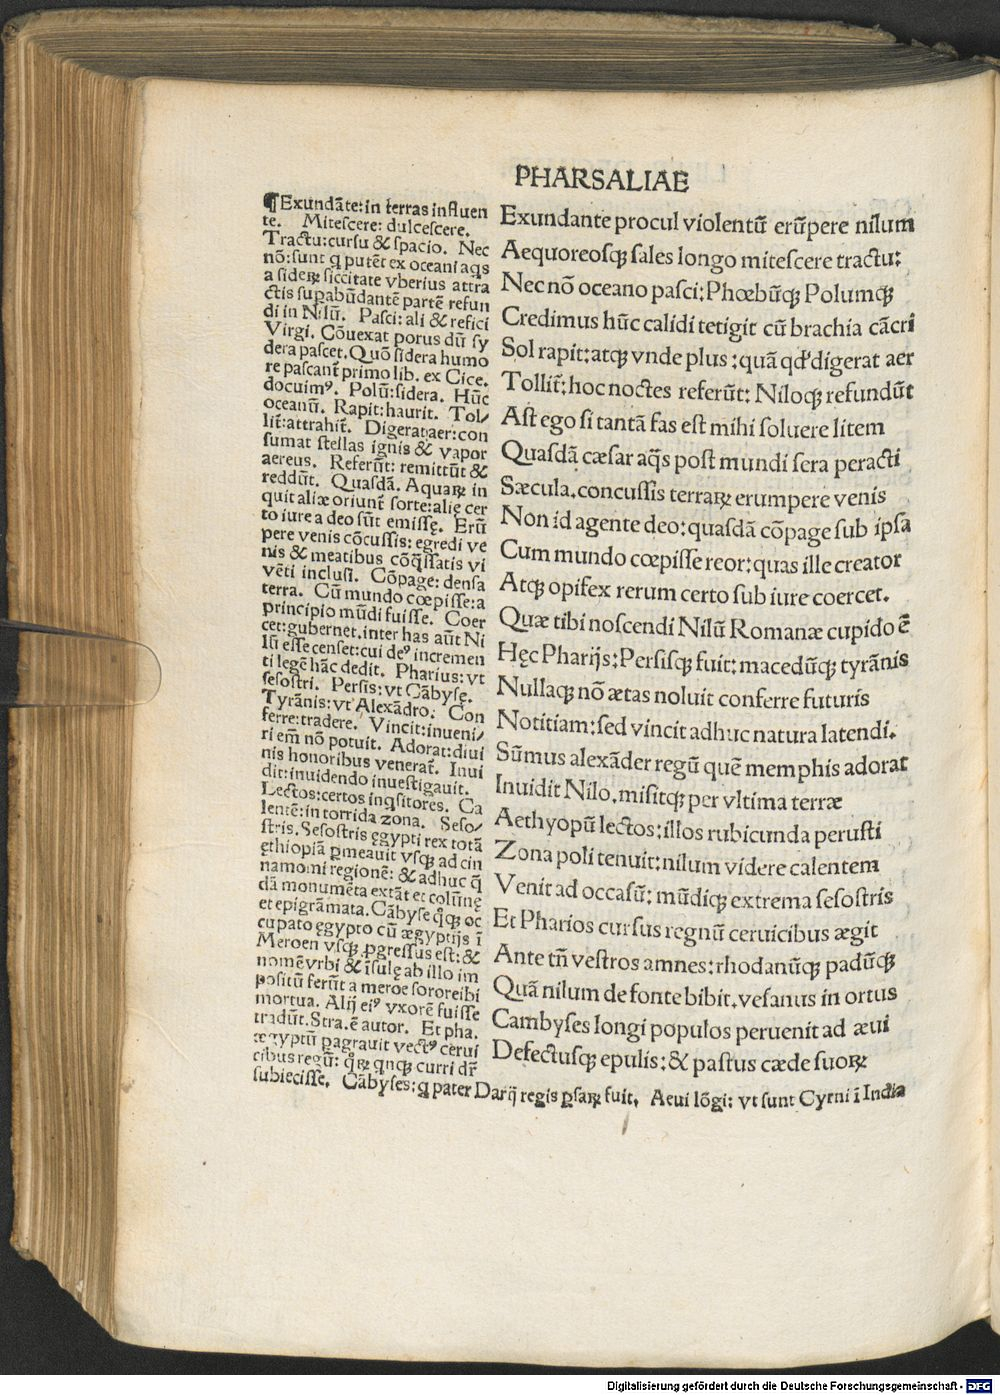 PHARSALIAE
¶Exundāte: in terras influen
te. Mitescere: dulcescere.
Tractu: cursu & spacio. Nec
nō: sunt q putēt ex oceani aqs
a sideꝝ siccitate vberius attra
ctis supabūdantē partē refun
di in Nilū. Pasci: ali & refici
Virgi. Cōuexat porus dū sy
dera pascet. Quō sidera humo
re pascant̄ primo lib. ex Cice.
docuimꝰ. Polū: sidera. Hūc
oceanū. Rapit: haurit. Tol/
lit̄: attrahit̄. Digerat aer: con
sumat stellas ignis & vapor
aereus. Referūt: remittūt &
reddūt. Quasdā. Aquaꝝ in
quit aliæ oriunt̄ sorte: alię cer
to iure a deo sūt emissę. Erū
pere venis cōcussis: egredi ve
nis & meatibus cōq̄ssatis vi
vēti inclusi. Cōpage: densa
terra. Cū mundo cœpisse: a
principio mūdi fuisse. Coer
cet: gubernet. inter has aūt Ni
lū esse censet: cui deꝰ incremen
ti legē hāc dedit. Pharius: vt
sesostri. Persis: vt Cābysę.
Tyrānis: vt Alexādro. Con
ferre: tradere. Vincit: inueni/
ri em̄ nō potuit. Adorat: diui
nis honoribus venerat̄. Inui
dit: inuidendo inuestigauit.
Lectos: certos inqsitores. Ca
lentē: in torrida zona. Seso/
stris. Sesostris ęgypti rex totā
ęthiopiā ꝑmeauit vsqꝫ ad cin
namomi regionē: & adhuc q̄
dā monumēta extāt et colūnę
et epigrāmata. Cābyse q̊qꝫ oc
cupato ęgypto cū ægyptijs ī
Meroen vsqꝫ ꝓgressus est: &
nomē vrbi & īsulę ab illo im
positū ferūt a meroe sorore ibi
mortua. Alij eiꝰ vxorē fuisse
tradūt. Stra. ē autor. Et pha.
ægyptū ꝑagrauit vectꝰ cerui
cibus regū: q̊ꝝ qnqꝫ curri dr̄
subiecisse. Cābyses: q pater Darij regis ꝑsaꝝ fuit. Aeui lōgi: vt sunt Cyrni ī India
Exundante procul violentū erūpere nilum
Aequoreosqꝫ sales longo mitescere tractu:
Nec nō oceano pasci: Phœbūqꝫ Polumqꝫ
Credimus hūc calidi tetigit cū brachia cācri
Sol rapit: atqꝫ vnde plus: quā qd̓ digerat aer
Tollit̄: hoc noctes referūt: Niloqꝫ refundūt
Ast ego si tantā fas est mihi soluere litem
Quasdā cæsar aq̄s post mundi sera peracti
Sæcula. concussis terraꝝ erumpere venis
Non id agente deo: quasdā cōpage sub ipsa
Cum mundo cœpisse reor: quas ille creator
Atqꝫ opifex rerum certo sub iure coercet.
Quæ tibi noscendi Nilū Romanæ cupido ē
Hęc Pharijs: Persisqꝫ fuit: macedūqꝫ tyrānis
Nullaqꝫ nō ætas noluit conferre futuris
Notitiam: sed vincit adhuc natura latendi.
Sūmus alexāder regū quē memphis adorat
Inuidit Nilo. misitqꝫ per vltima terræ
Aethyopū lectos: illos rubicunda perusti
Zona poli tenuit: nilum videre calentem
Venit ad occasū: mūdiqꝫ extrema sesostris
Et Pharios cursus regnū ceruicibus ægit
Ante tn̄ vestros amnes: rhodanūqꝫ padūqꝫ
Quā nilum de fonte bibit. vesanus in ortus
Cambyses longi populos peruenit ad æui
Defectusqꝫ epulis: & pastus cæde suoꝝ
Digitalisierung gefördert durch die Deutsche Forschungsgemeinschaft - DFG